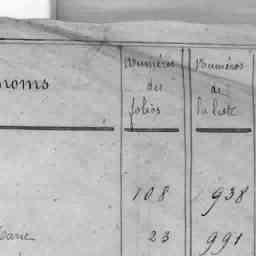 Numéros Numéros
noms des de
folios la liste
108 938
Marie 23 991